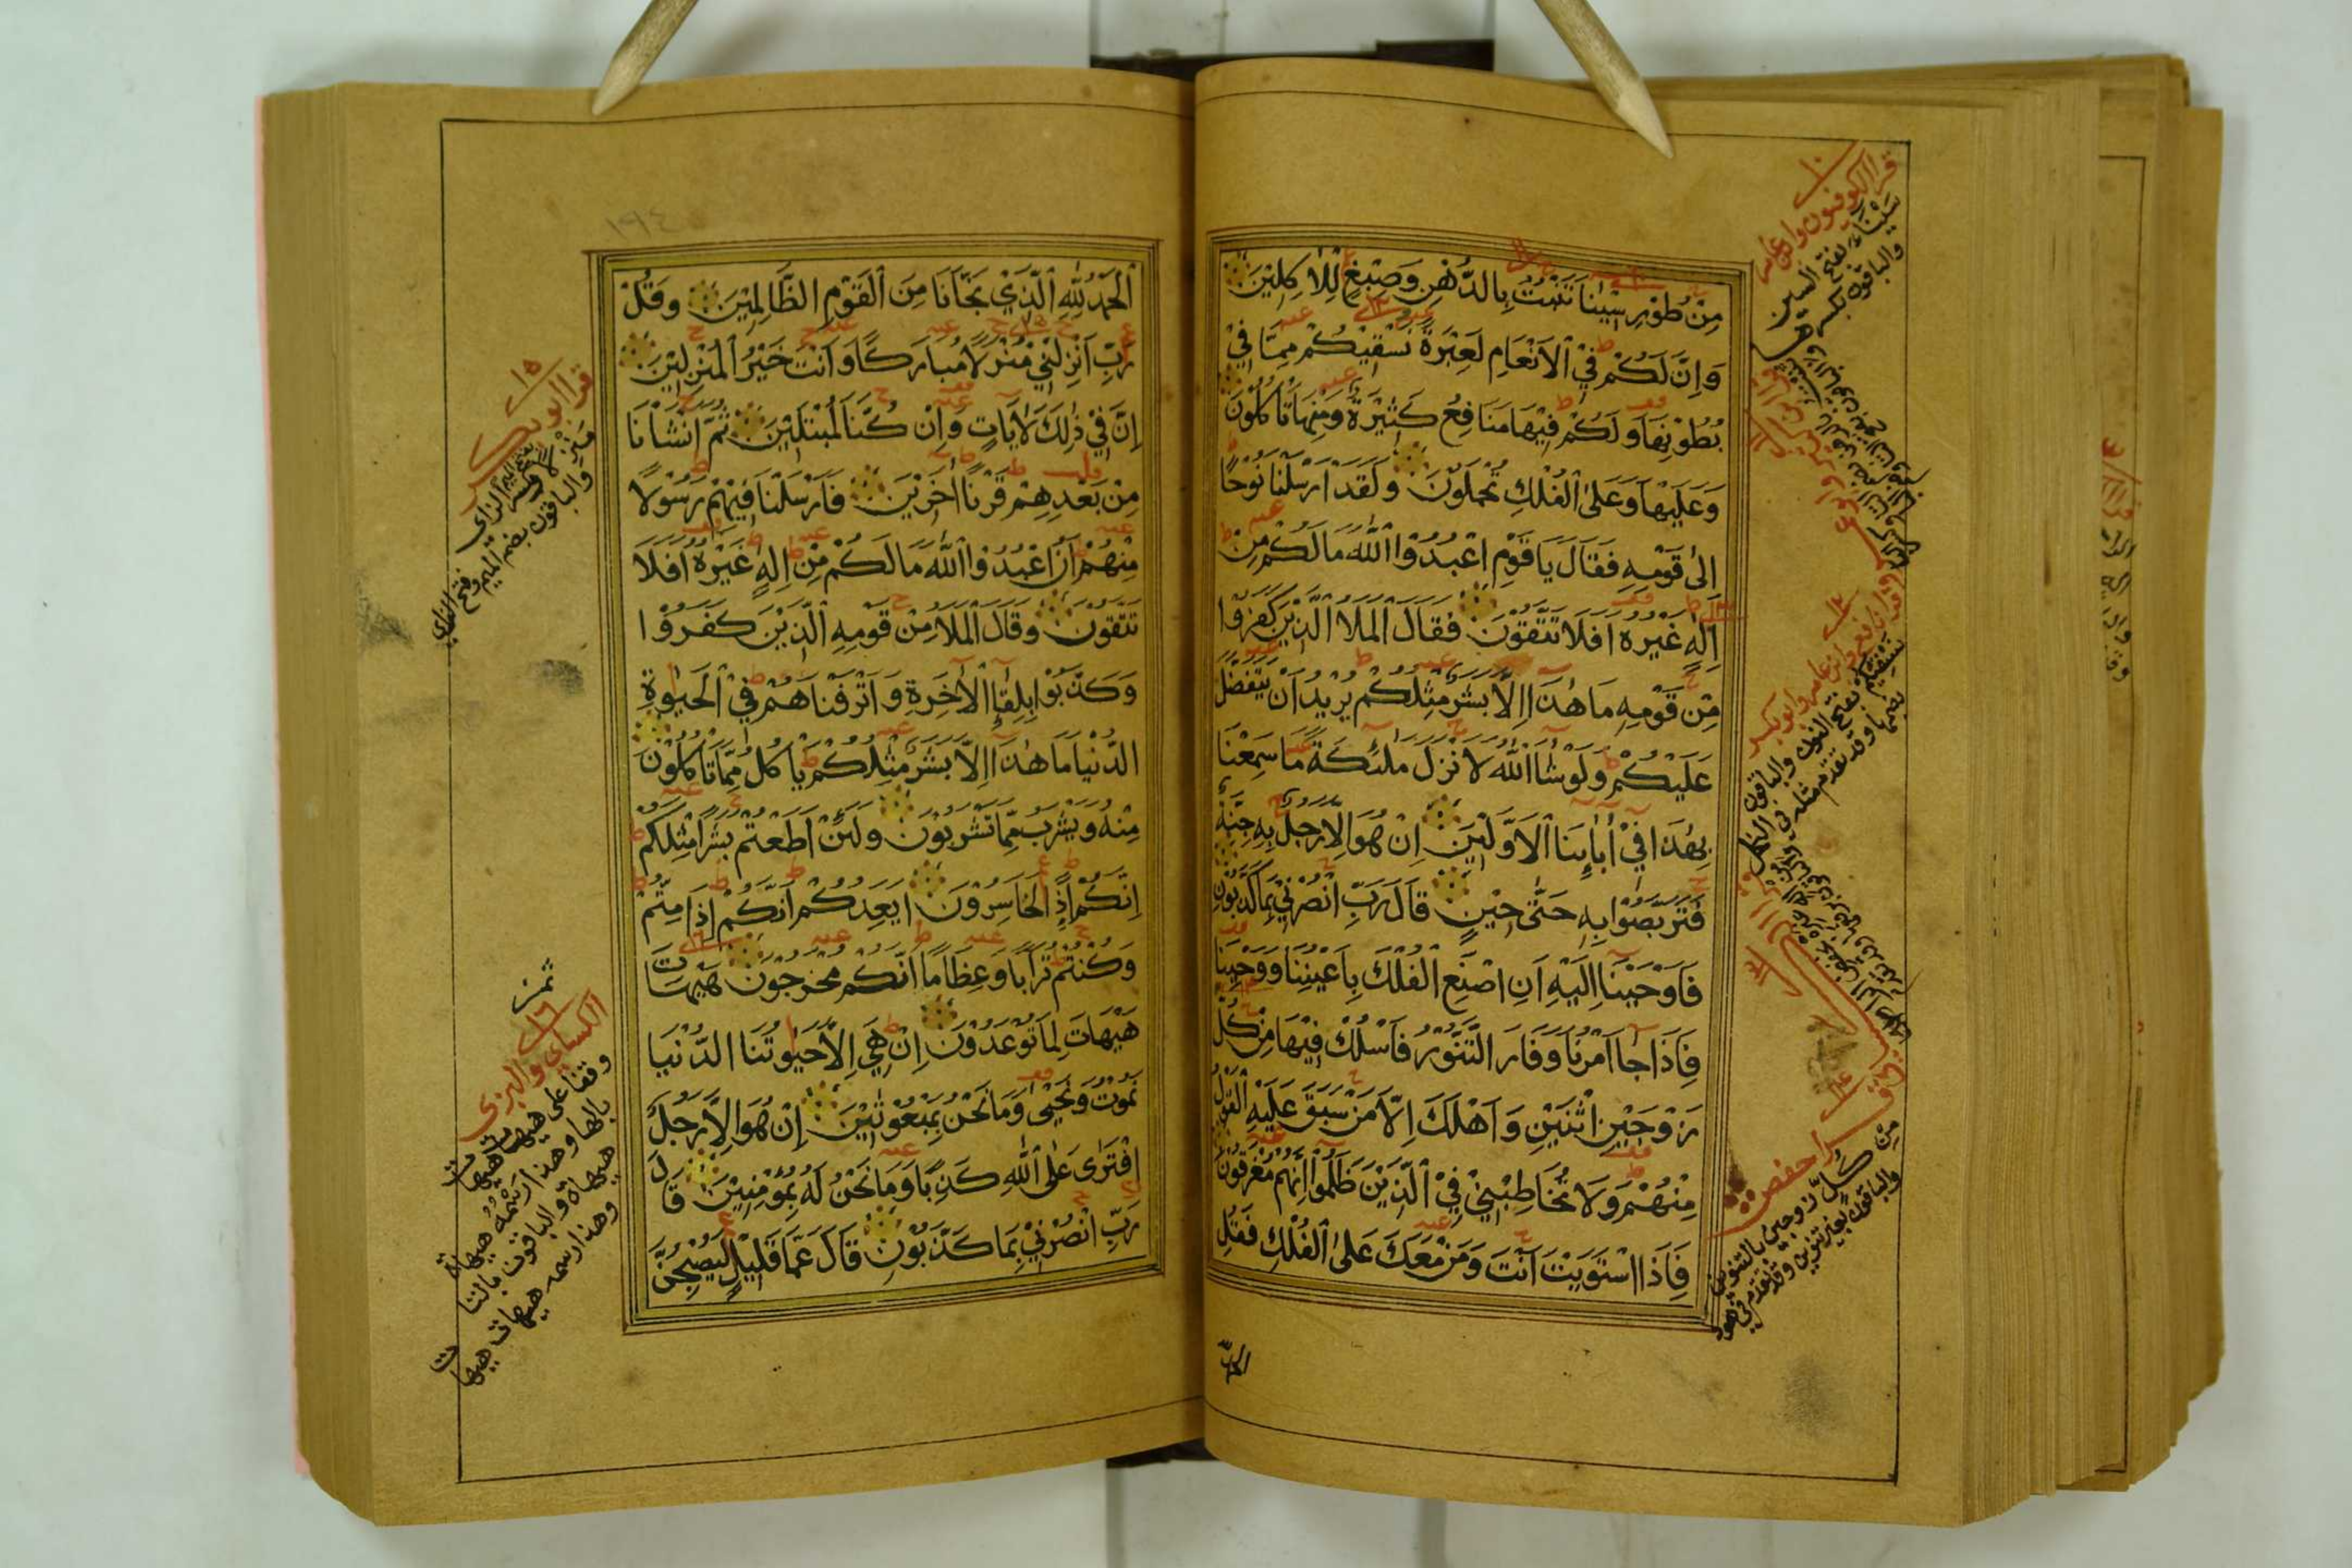 مِنْ طُوْرِ سِيْنَا تَنْبُتُ بِالدُّهْنِ وَصِبْغٍ لِلْاٰكِلِيْنَ
وَاِنَّ لَكُمْ فِيْ الْاَنْعَامِ لَعِبْرَةً نُسْقِيْكُمْ مِمَّا فِيْ
بُطُوْنِهَا وَلَكُمْ فِيْهَا مَنَافِعُ كَثِيْرَةٌ وَمِنْهَا تَاْكُلُوْنَ
وَعَلَيْهَا وَعَلَى الْفُلْكِ تُحْمَلُوْنَ وَلَقَدْ اَرْسَلْنَا نُوْحًا
اِلٰى قَوْمِهِ فَقَالَ يَا قَوْمِ اعْبُدُوْا اللّٰهَ مَا لَكُمْ مِنْ
اِلٰهٍ غَيْرُهُ اَفَلَا تَتَّقُوْنَ فَقَالَ الْمَلَاُ الَّذِيْنَ كَفَرُوْا
مِنْ قَوْمِهِ مَا هٰذَا اِلَّا بَشَرٌ مِثْلُكُمْ يُرِيْدُ اَنْ يَتَفَضَّلَ
عَلَيْكُمْ وَلَوْ شَاَ اللّٰهُ لَاَنْزَلَ مَلٰئِكَةً مَا سَمِعْنَا
بِهٰذَا فِيْ اٰبَاىِٕنَا الْاَوَّلِيْنَ اِنْ هُوَ اِلَّا رَجُلٌ بِهِ جِنَّةٌ
فَتَرَبَّصُوْا بِهِ حَتّٰى حِيْنٍ قَالَ رَبِّ انْصُرْنِيْ بِمَا كَذَّبُوْنِ
فَاَوْحَيْنَا اِلَيْهِ اَنِ اصْنَعِ الْفُلْكَ بِاَعْيُنِنَا وَوَحْيِنَا
فَاِذَا جَا اَمْرُنَا وَفَارَ التَّنُّوْرُ فَاسْلُكْ فِيْهَا مِنْ كُلٍّ
زَوْجَيْنِ اثْنَيْنِ وَاَهْلَكَ اِلَّا مَنْ سَبَقَ عَلَيْهِ الْقَوْلُ
مِنْهُمْ وَلَا تُخَاطِبْنِيْ فِيْ الَّذِيْنَ ظَلَمُوْا اِنَّهُمْ مُغْرَقُوْنَ
فَاِذَا اسْتَوَيْتَ اَنْتَ وَمَنْ مَعَكَ عَلَى الْفُلْكِ فَقُلِ
١٠
قرا الكوفيون وابن عامر
سَيْنَاءَ بفتح السين
والباقون بكسرها
١٢
نسقيكم بفتح النون والباقون
بضمها وقد تقدم مثله في النحل
١٤
قرا حفص
مِن كُلٍّ زوجين بالتنوين
والباقون بغير تنوين وقد تقدم في هود
الْحَمْدُ لِلّٰهِ الَّذِيْ نَجَّانَا مِنَ الْقَوْمِ الظَّالِمِيْنَ وَقُلْ
رَبِّ اَنْزِلْنِيْ مُنْزَلًا مُبَارَكًا وَاَنْتَ خَيْرُ الْمُنْزِلِيْنَ
اِنَّ فِيْ ذٰلِكَ لَاٰيَاتٍ وَاِنْ كُنَّا لَمُبْتَلِيْنَ ثُمَّ اَنْشَاْنَا
مِنْ بَعْدِهِمْ قَرْنًا اٰخَرِيْنَ فَاَرْسَلْنَا فِيْهِمْ رَسُوْلًا
مِنْهُمْ اَنِ اعْبُدُوْا اللّٰهَ مَا لَكُمْ مِنْ اِلٰهٍ غَيْرُهُ اَفَلَا
تَتَّقُوْنَ وَقَالَ الْمَلَاُ مِنْ قَوْمِهِ الَّذِيْنَ كَفَرُوْا
وَكَذَّبُوْا بِلِقَاِ الْاٰخِرَةِ وَاَتْرَفْنَاهُمْ فِيْ الْحَيٰوةِ
الدُّنْيَا مَا هٰذَا اِلَّا بَشَرٌ مِثْلُكُمْ يَاْكُلُ مِمَّا تَاْكُلُوْنَ
مِنْهُ وَيَشْرَبُ مِمَّا تَشْرَبُوْنَ وَلَئِنْ اَطَعْتُمْ بَشَرًا مِثْلَكُمْ
اِنَّكُمْ اِذًا لَخَاسِرُوْنَ اَيَعِدُكُمْ اَنَّكُمْ اِذَا مِتُّمْ
وَكُنْتُمْ تُرَابًا وَعِظَامًا اَنَّكُمْ مُخْرَجُوْنَ هَيْهَاتَ
هَيْهَاتَ لِمَا تُوْعَدُوْنَ اِنْ هِيَ اِلَّا حَيٰوتُنَا الدُّنْيَا
نَمُوْتُ وَنَحْيٰى وَمَا نَحْنُ بِمَبْعُوْثِيْنَ اِنْ هُوَ اِلَّا رَجُلٌ
افْتَرٰى عَلَى اللّٰهِ كَذِبًا وَمَا نَحْنُ لَهُ بِمُؤْمِنِيْنَ قَالَ
رَبِّ انْصُرْنِيْ بِمَا كَذَّبُوْنِ قَالَ عَمَّا قَلِيْلٍ لَيُصْبِحُنَّ
١٥
قرا ابو بكر
مَنْزِلًا بفتح الميم وكسر الزاي
والباقون بضم الميم وفتح الزاي
١٦
الكسائي والبزي
وقفا على هيهات هيهات
بالها وهذا رسمه هيهاة
هيهاة والباقون بالتا
وهذا رسمه هيهات هيهات